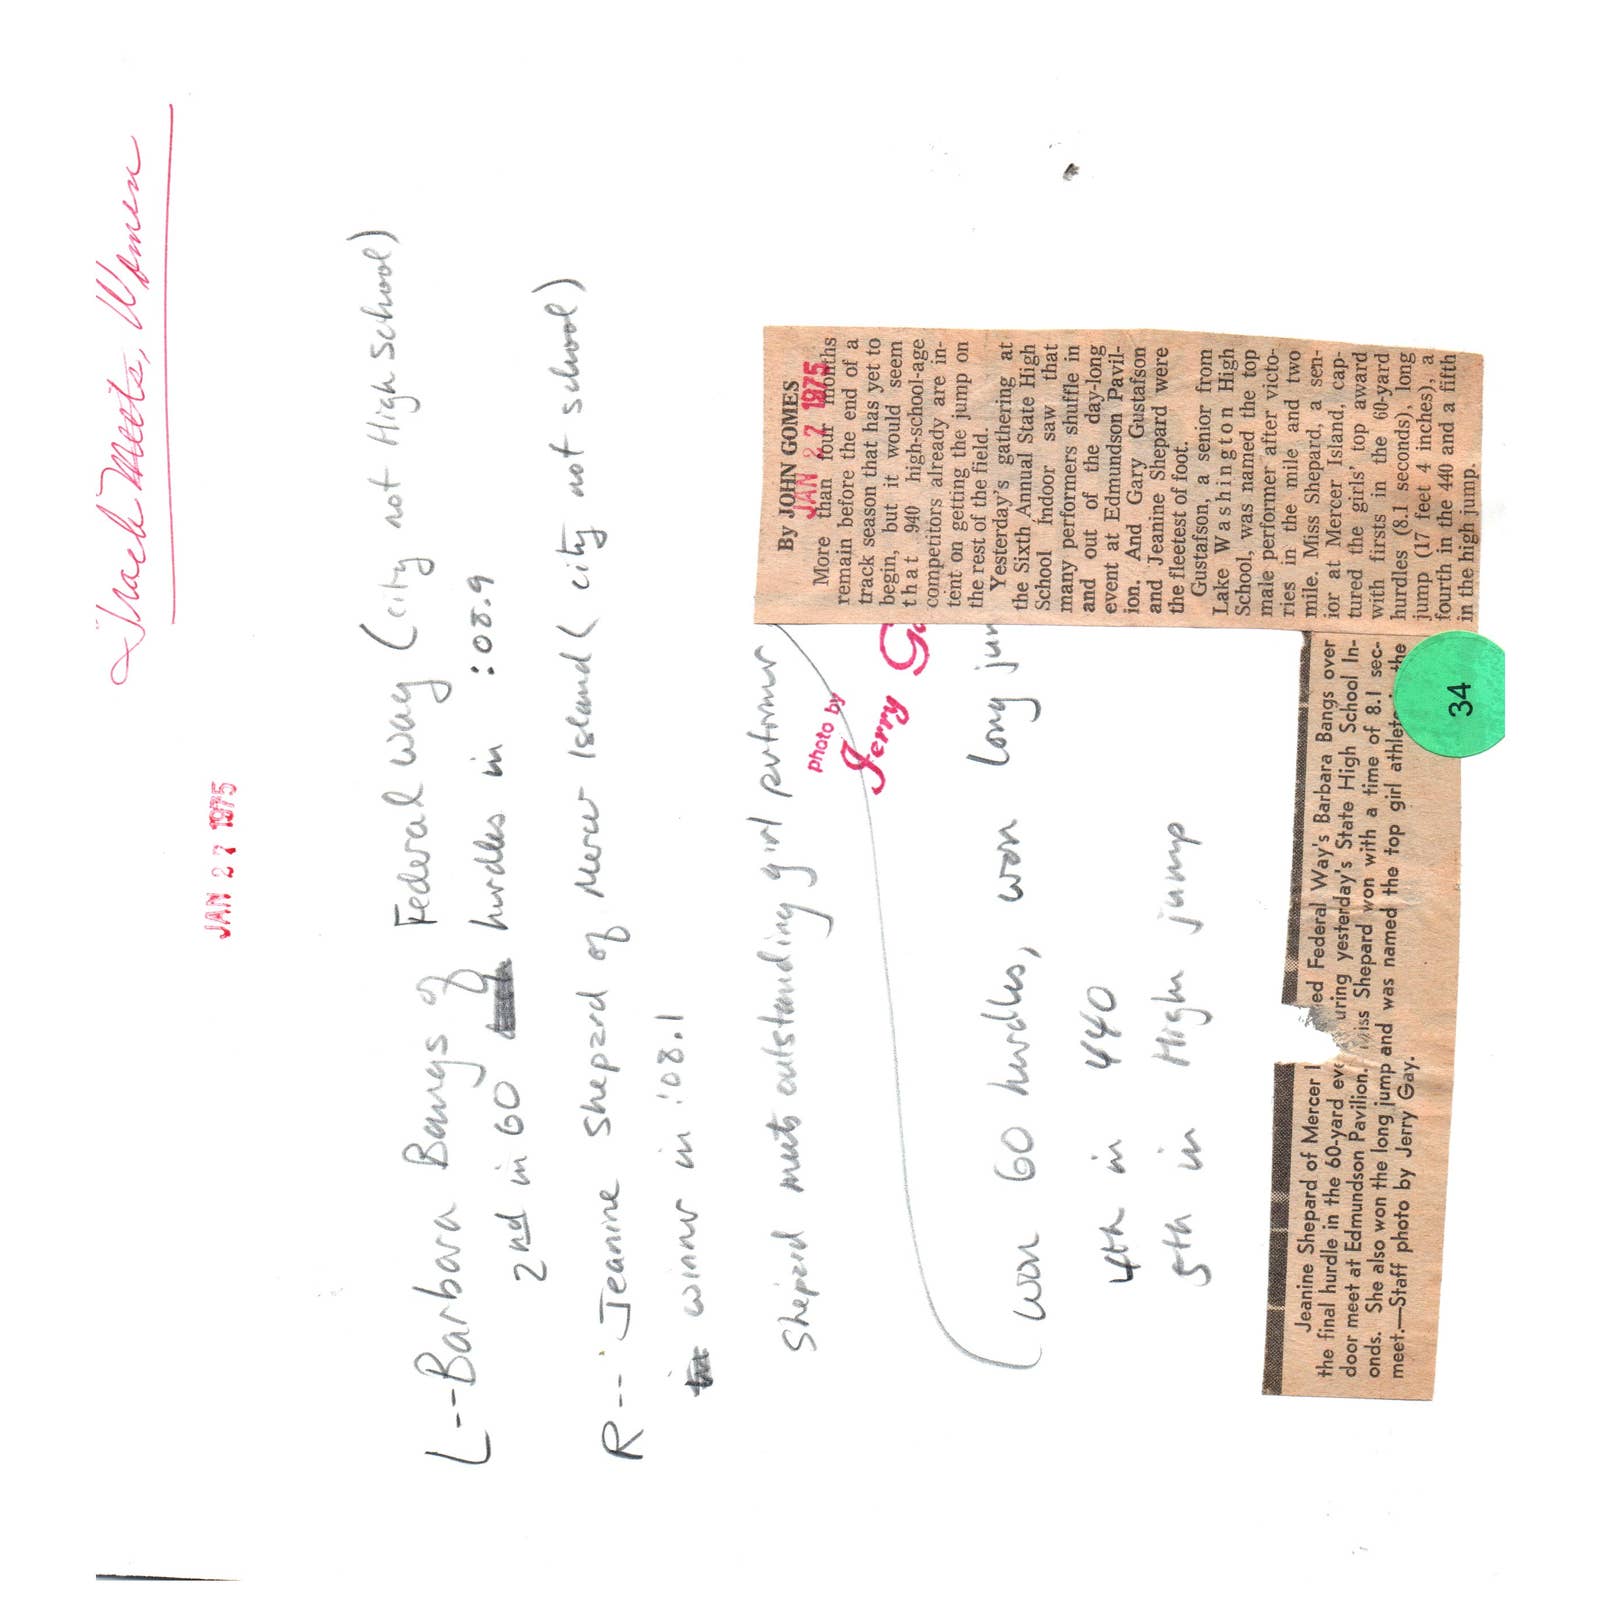 Track Meets, Women
JAN 27 1975
L--Barbara Bangs of Federal Way (city not High School)
2nd in 60 hurdles in :08.9
R-- Jeanine Shepard of Mercer Island (city not school)
winner in :08.1
Shepard meets outstanding girl performer
photo by
Jerry Ga
won 60 hurdles, won long jum
4th in 440
5th in High jump
By JOHN GOMES
JAN 27 1975
More than four months
remain before the end of a
track season that has yet to
begin, but it would seem
that 940 high-school-age
competitors already are in-
tent on geting the jump on
the rest of the field.
Yesterday's gathering at
the Sixth Annual State High
School Indoor saw that
many performers shuffle in
and out of the day-long
event at Edmundson Pavil-
ion. And Gary Gustafson
and Jeanine Shepard were
the fleetest of foot.
Gustafson, a senior from
Lake Washington High
School, was named the top
male performer after victo-
ries in the mile and two
mile. Miss Shepard, a sen-
ior at Mercer Island, cap-
tured the girls' top award
with firsts in the 60-yard
hurdles (8.1 seconds), long
jump (17 feet 4 inches), a
fourth in the 440 and a fifth
in the high jump.
Jeanine Shepard of Mercer I ed Federal Way's Barbara Bangs over
the final hurdle in the 60-yard eve uring yesterday's State High School In-
door meet at Edmundson Pavilion. Miss Shepard won with a time of 8.1 sec-
onds. She also won the long jump and was named the top girl athlete in the
meet.—Staff photo by Jerry Gay.
34